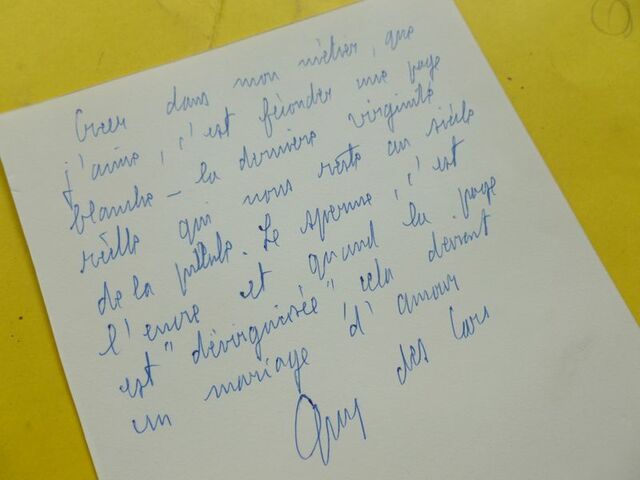 Créer dans mon métier, que
j'aime, c'est féconder une page
blanche - la dernière virginité
réelle qui nous reste au siècle
de la pillule. Le sperme, c'est
l'encre et quand la page
est "dévirginisée" cela devient
un mariage d'amour
Guy des Cars